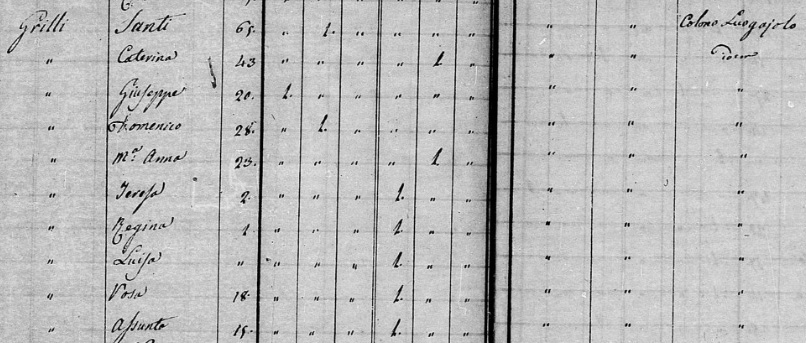 Grilli Santi 65. " 1. " " " " " " Colono Luogajolo
" Caterina 43 " " " " 1. " " " Idem
" Giuseppe 20. 1. " " " " " " " "
" Domenico 28. " 1. " " " " " " "
" Mª Anna 23. " " " " 1. " " " "
" Teresa 2. " " " 1. " " " " "
" Regina 1. " " " 1. " " " " "
" Luisa " " " " 1. " " " " "
" Rosa 18. " " " 1. " " " " "
" Assunta 15. " " " 1. " " " " "